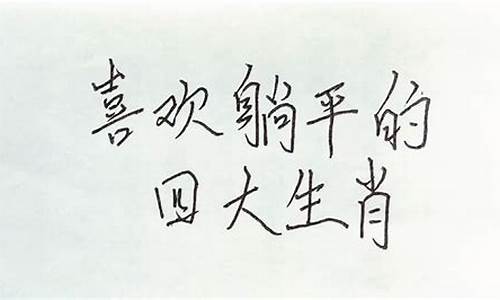 喜欢躺平的
四大生肖